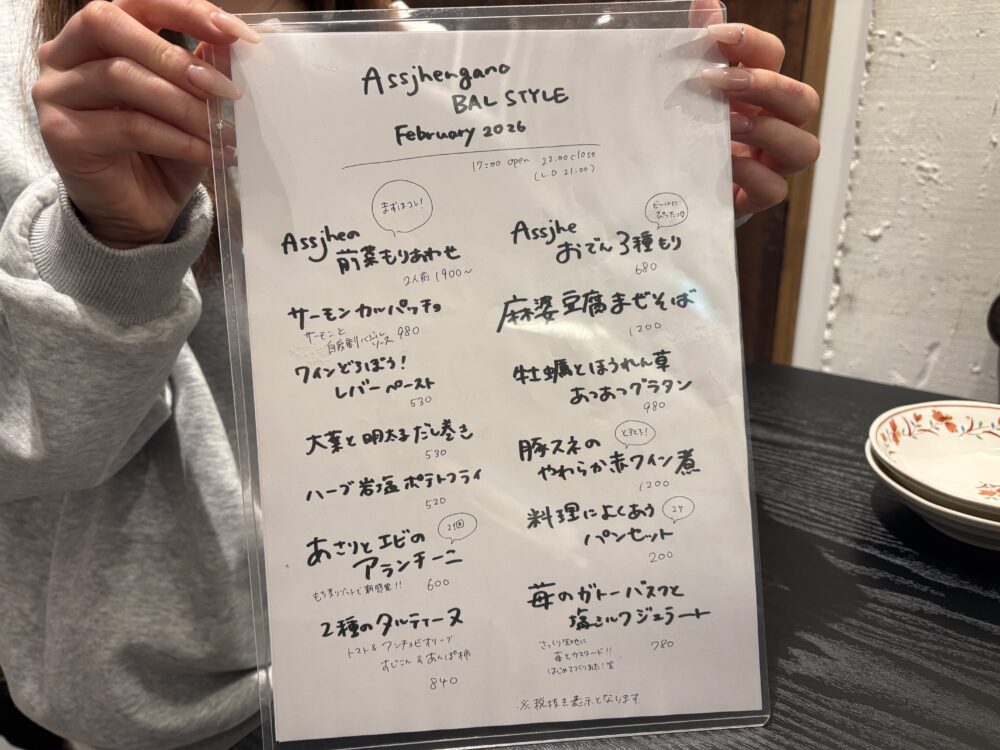 Assjhengano
BAL STYLE
February 2026
17:00 open 22:00 close
(L.O 21:00)
まずはコレ!
Assjheの
前菜もりあわせ
2人前 1900～
サーモンカルパッチョ
サーモンと
自家製バジル
ソース 980
ワインどろぼう!
レバーペースト
530
大葉と明太子だし巻き
530
ハーブ岩塩ポテトフライ
520
あさりとエビの
2個
アランチーニ
もち麦リゾットで新感覚!! 600
2種のタルティーヌ
トマト&アンチョビオリーブ
すじこん&あんぽ柿
840
ビールに
ぴったり
Assjhe
おでん3種もり
680
麻婆豆腐まぜそば
1200
牡蠣とほうれん草
あつあつグラタン
980
豚スネの
とろとろ!
やわらか赤ワイン煮
1200
料理によくあう
2ケ
パンセット
200
苺のガトーバスクと
塩ミルクジェラート
さっくり生地に
苺とカスタード!!
はじめてつくりました!笑
780
※税抜き表示となります